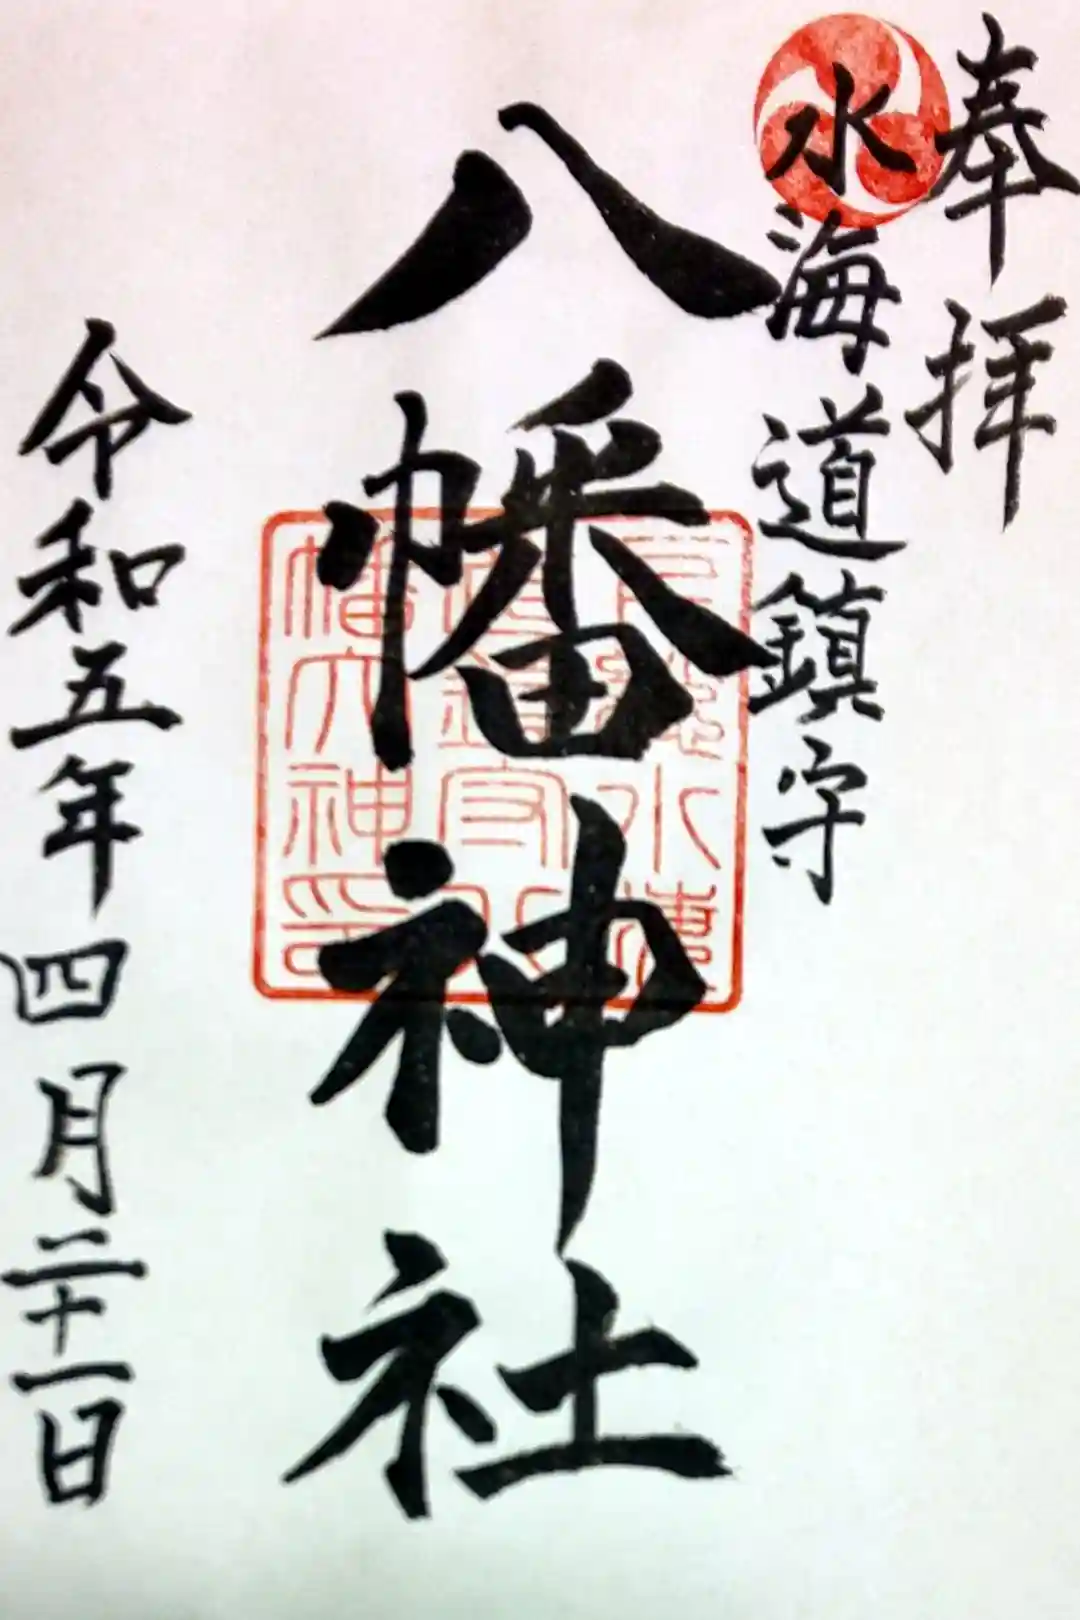 奉拝
水海道鎮守
八幡神社
令和五年四月二十一日